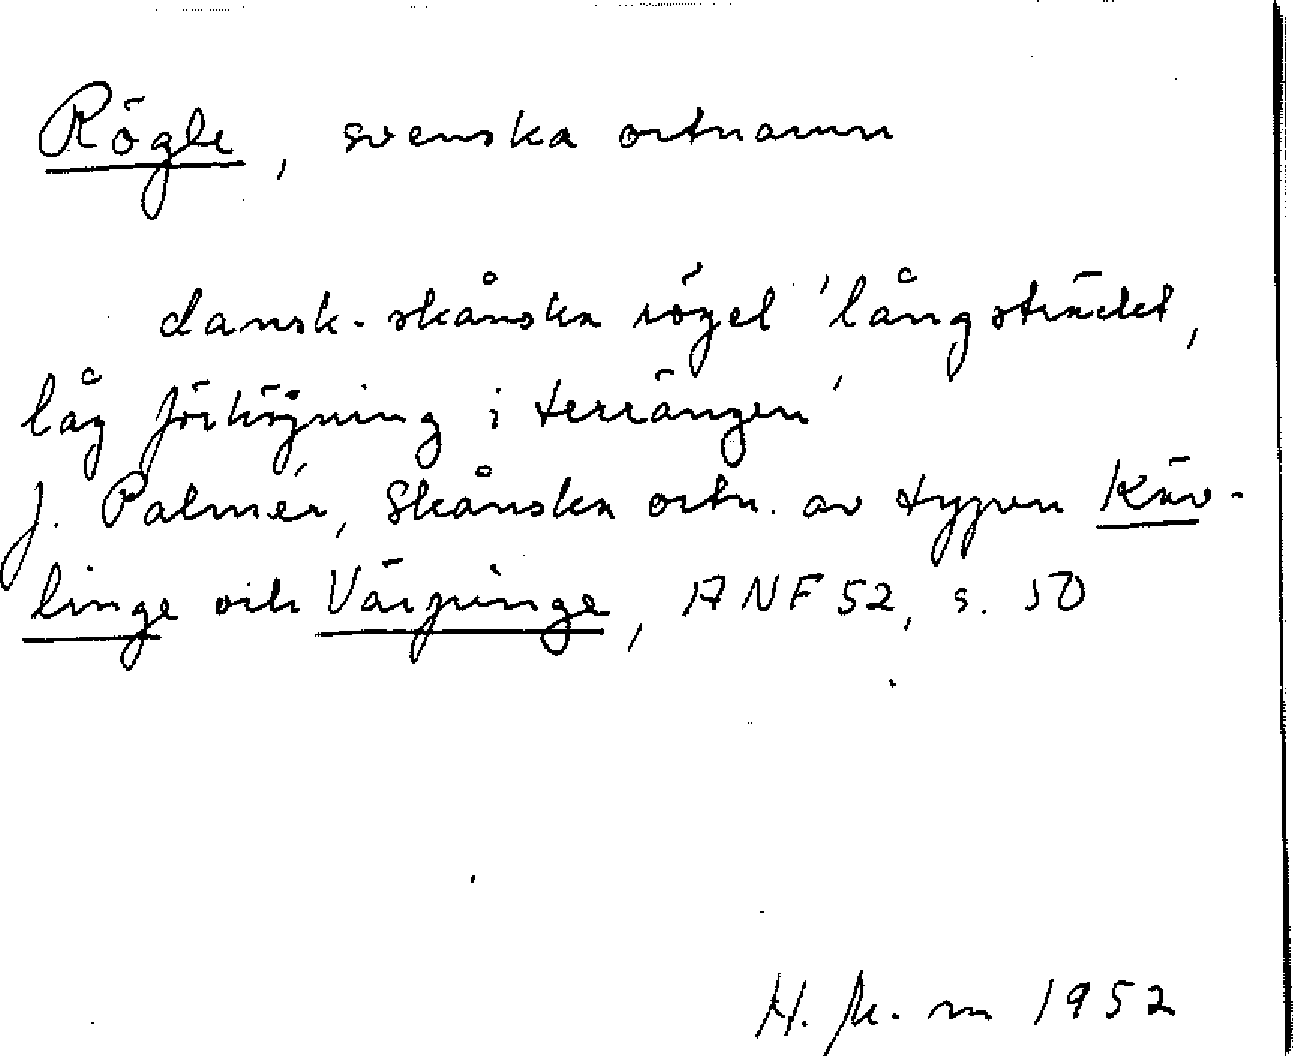 Rögle, svenska ortnamn
dansk-skånska rögel 'långsträckt,
låg förhöjning i terrängen'
J. Palmér, Skånska ortn. av typen Käv-
linge och Värpinge, ANF 52, s. 50
H. m 1952